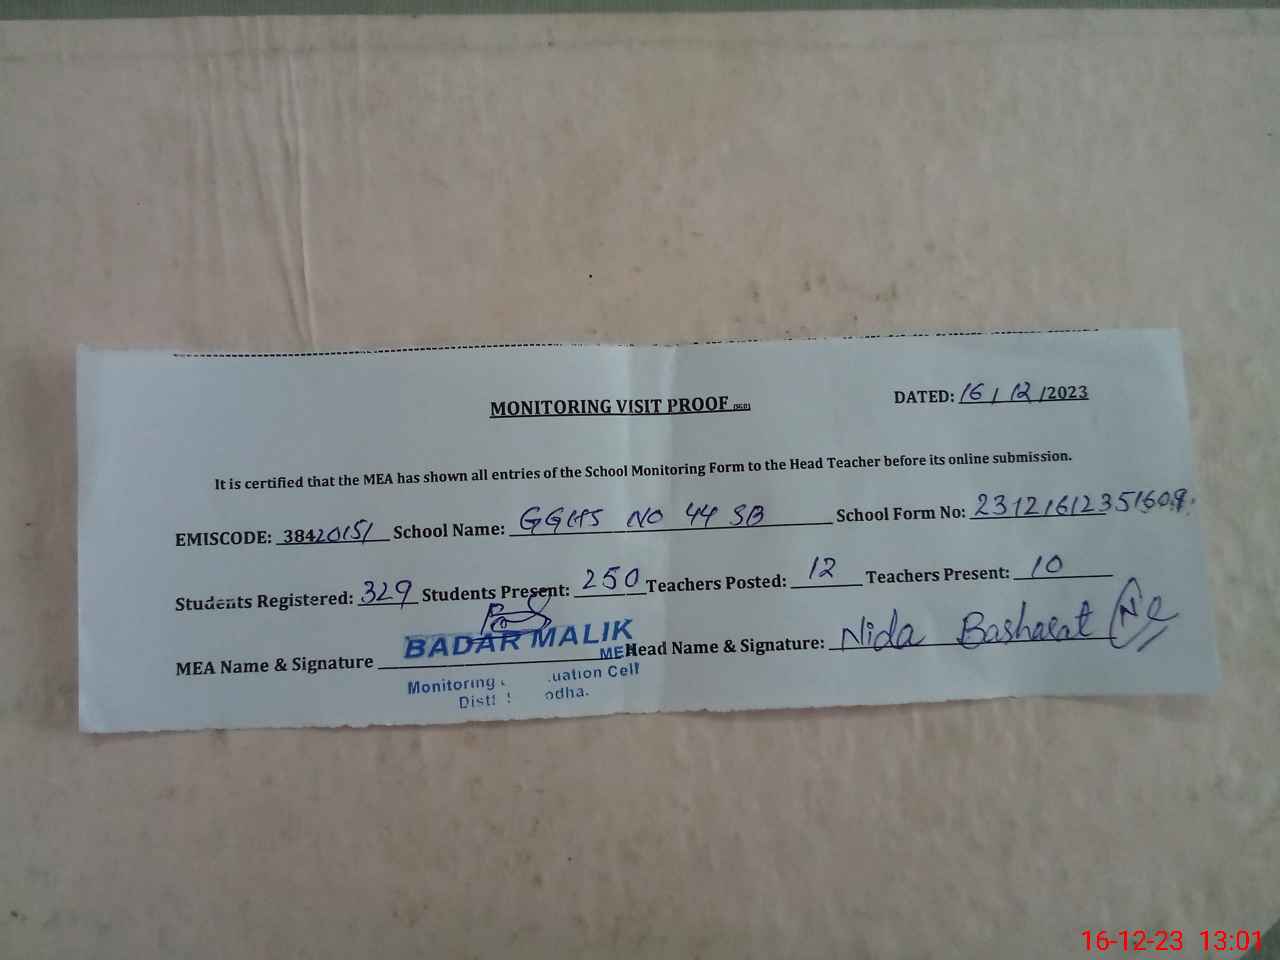 MONITORING VISIT PROOF
DATED: 16 / 12 /2023
It is certified that the MEA has shown all entries of the School Monitoring Form to the Head Teacher before its online submission.
EMISCODE: 38420151 School Name: GGHS NO 44 SB School Form No:
Students Registered: 329 Students Present: 250 Teachers Posted: 12 Teachers Present: 10
MEA Name & Signature BADAR MALIK Head Name & Signature: Nida Basharat
MEA
Monitoring
16-12-23 13:01